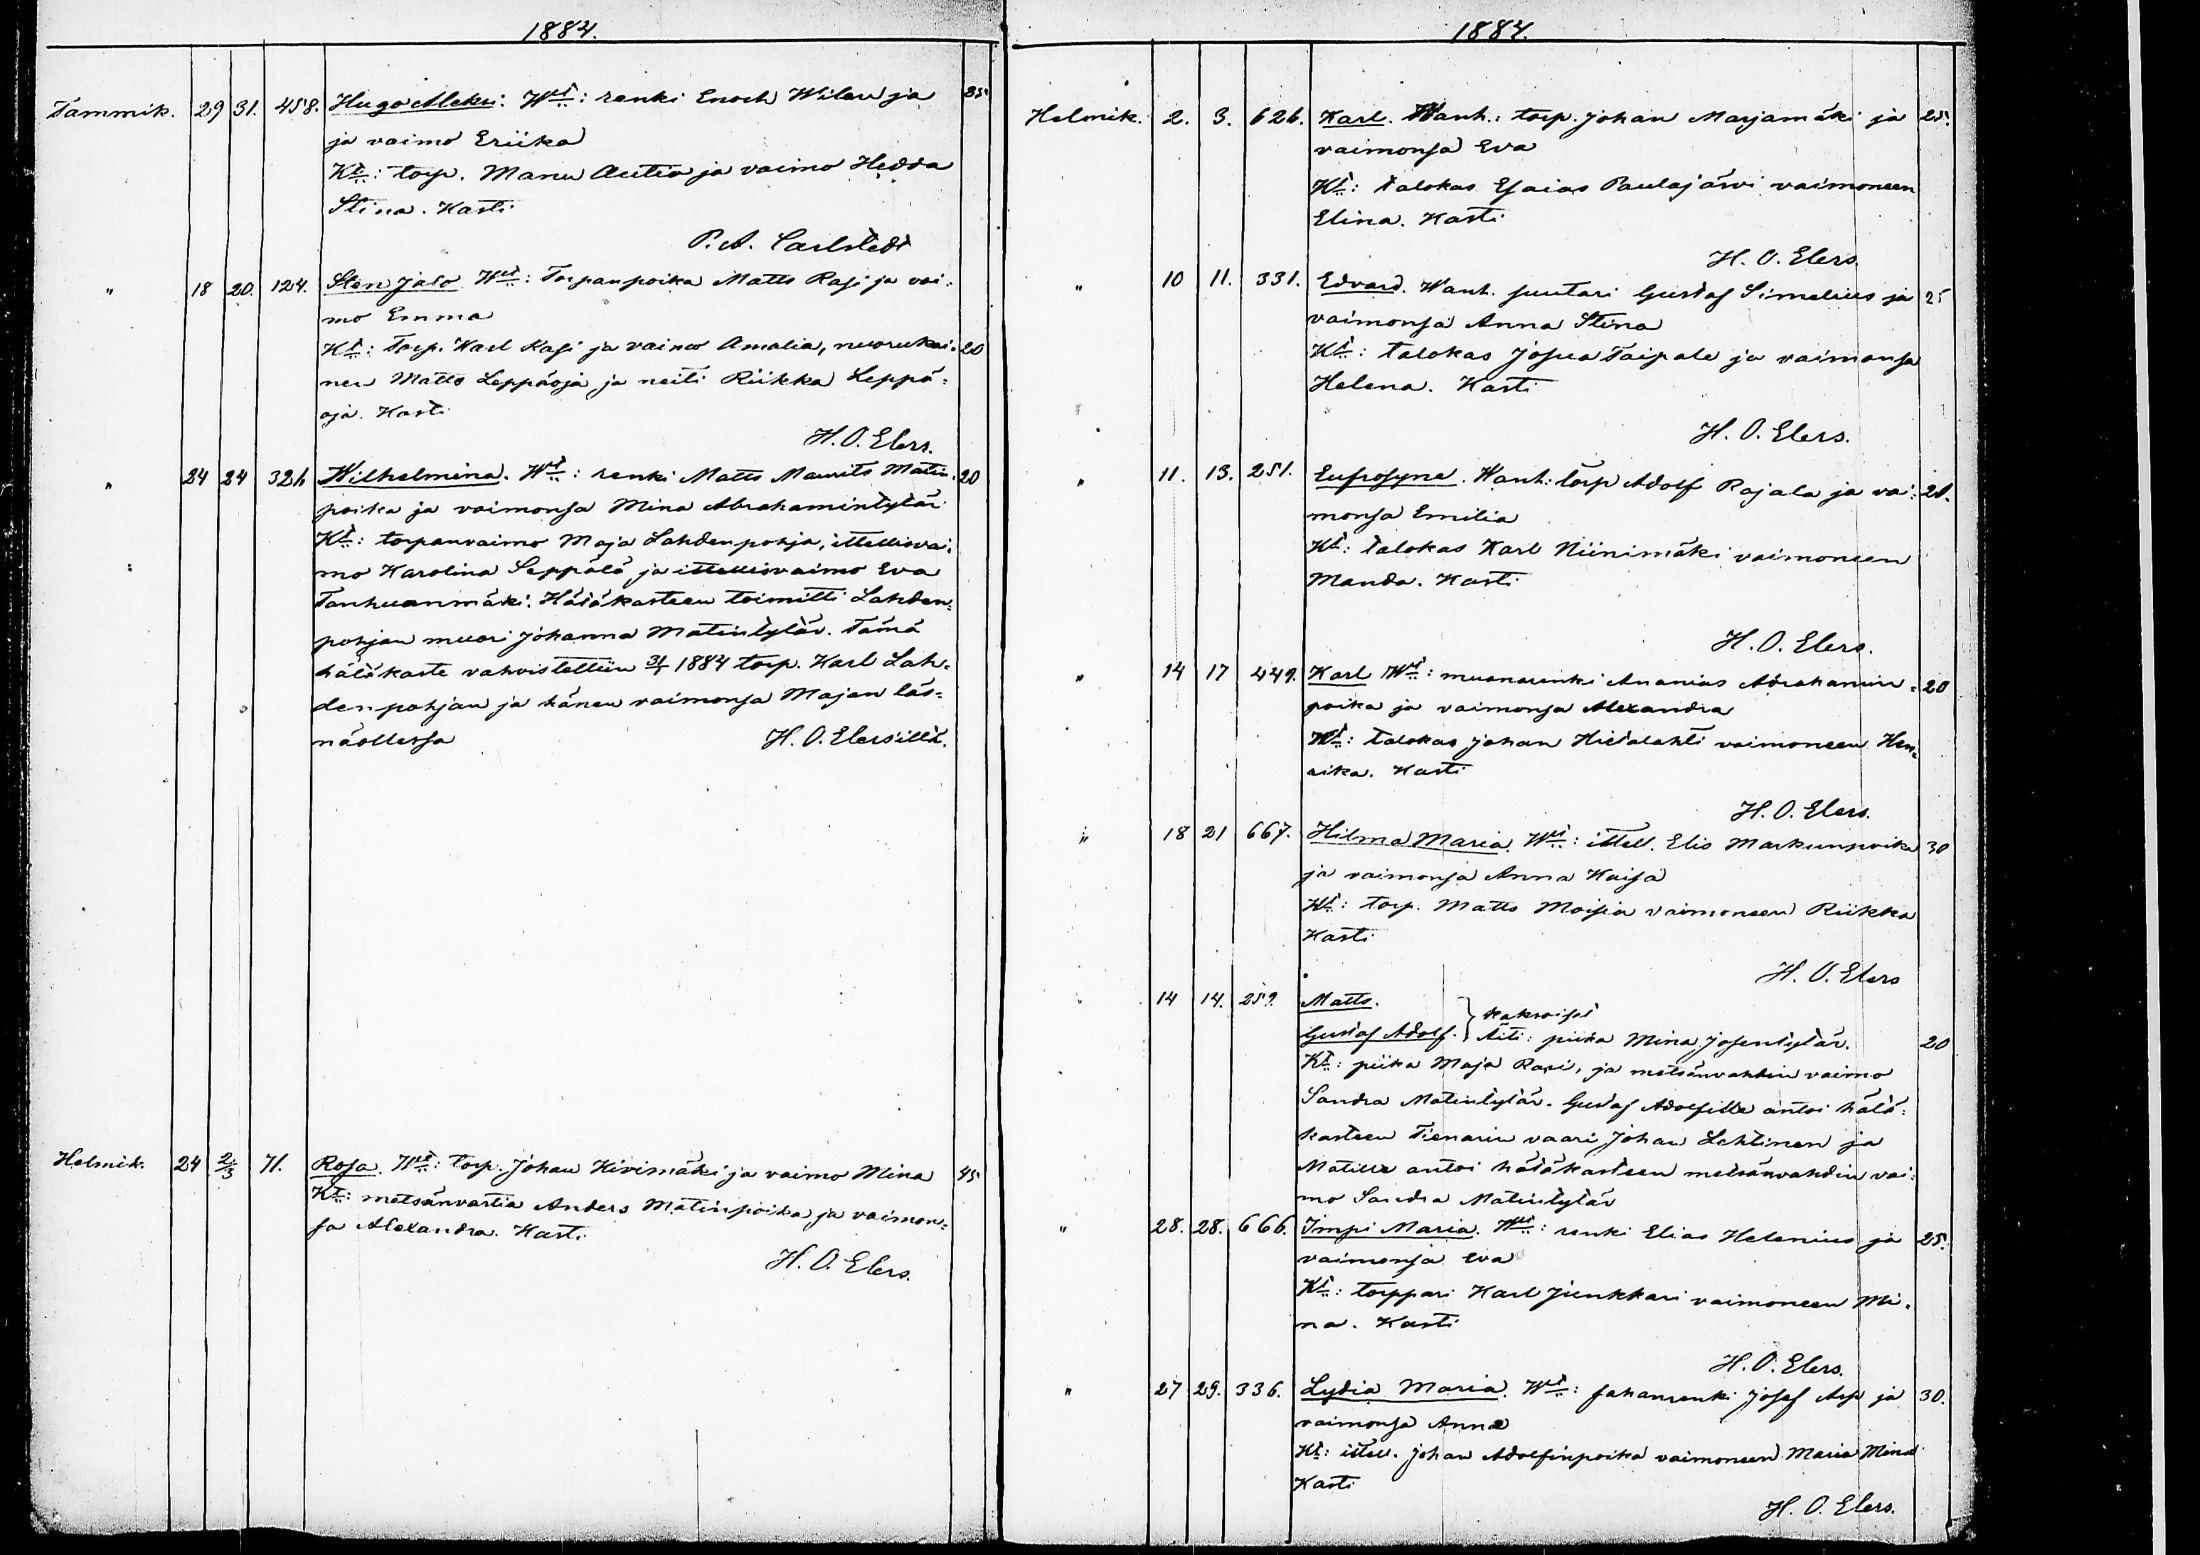 1884.
Tammik. 29 31. 458. Hugo Aleksi. Wt: renki Enoch Wilen ja 35
ja vaimo Eriika
Kt: torp. Manu Autio ja vaimo Hedda
Stina. Kasti
P. A. Carlstedt
" 18 20. 124. Sten Jalo. Wat: Torpanpoika Matts Rasi ja vai-
mo Emma
Kt: Torp. Karl Rasi ja vaimo Amalia, nuorukai- 20
nen Matts Leppäoja ja neiti Riikka Leppä-
oja. Kasti
H. O. Elers.
" 24 24 326 Wilhelmina. Wt: renki Matts Maurits Matin- 20
poika ja vaimonsa Mina Abrahamintytär
Kt: torpanvaimo Maja Lahdenpohja, ittellisvai-
mo Karolina Seppälä ja ittellisvaimo Eva
Tanhuanmäki. Hätäkasteen toimitti Lahden-
pohjan muori Johanna Matintytär. Tämä
hätäkaste vahvistettiin 31/1 1884 torp. Karl Lah-
denpohjan ja hänen vaimonsa Majan läs-
näollessa H. O. Elers'iltä.
Helmik. 24 2/3 71. Rosa. Wat: torp. Johan Kivimäki ja vaimo Mina 45
Kt: metsänvartia Anders Matinpoika ja vaimon-
sa Alexandra. Kasti
H. O. Elers.
1884.
Helmik. 2. 3. 626. Karl. Wanh.: torp. Johan Marjamäki ja 25.
vaimonsa Eva
Kt: talokas Esaias Paulajärvi vaimoneen
Elina. Kasti
H. O. Elers.
" 10 11. 331. Edvard. Wanh. suutari Gustaf Simelius ja 25
vaimonsa Anna Stina
Kt: talokas Josua Taipale ja vaimonsa
Helena. Kasti
H. O. Elers.
" 11. 13. 251. Eufrosyne. Wanh: torp Adolf Rajala ja vai-
monsa Emilia
Kt: talokas Karl Niinimäki vaimoneen
Manda. Kasti
H. O. Elers.
" 14 17 449. Karl Wat: muonarenki Ananias Abrahamin- 20
poika ja vaimonsa Alexandra
Kt: talokas Johan Hietalahti vaimoneen Hen-
rika. Kasti
H. O. Elers.
" 18 21 667. Hilma Maria. Wat: ittell. Elis Markunpoika 30
ja vaimonsa Anna Kaisa
Kt: torp. Matts Moisio vaimoneen Riikka
Kasti
H. O. Elers
" 14 14. 259. Matts.
kaksoiset
Gustaf Adolf. Äiti: piika Mina Josentytär. 20
Kt: piika Maja Rasi, ja metsänvahdin vaimo
Sandra Matintytär. Gustaf Adolfille antoi hätä-
kasteen Tienarin vaari Johan Lehtinen ja
Matille antoi hätäkasteen metsänvahdin vai-
mo Sandra Matintytär
" 28. 28. 666. Impi Maria. Wat: renki Elias Helenius ja 25.
vaimonsa Eva
Kt: torppari Karl Junkkari vaimoneen Mi-
na. Kasti
H. O. Elers.
" 27 29. 336. Lydia Maria. Wt: sahanrenki Josef Asp ja 30.
vaimonsa Anna
Kt: ittell. Johan Adolfinpoika vaimoneen Maria Mina
Kasti
H. O. Elers.